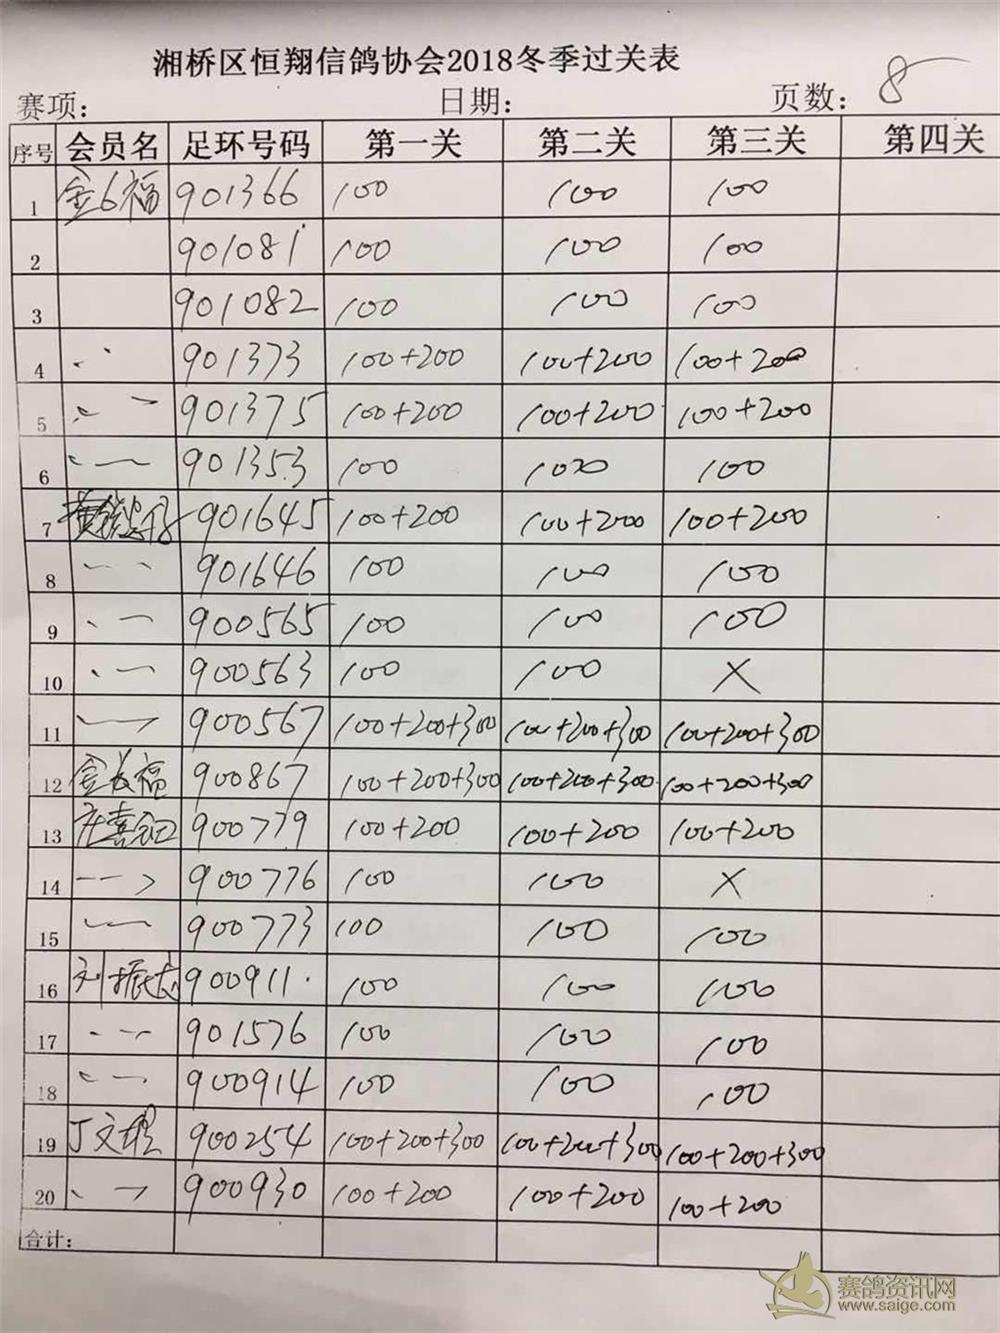 湘桥区恒翔信鸽协会2018冬季过关表
赛项: 日期: 页数: 8
序号 会员名 足环号码 第一关 第二关 第三关 第四关
1 金6福 901366 100 100 100
2 901081 100 100 100
3 901082 100 100 100
4 901373 100+200 100+200 100+200
5 901375 100+200 100+200 100+200
6 901353 100 100 100
7 901645 100+200 100+200 100+200
8 901646 100 100 100
9 900565 100 100 100
10 900563 100 100 X
11 900567 100+200+300 100+200+300 100+200+300
12 金长福 900867 100+200+300 100+200+300 100+200+300
13 900779 100+200 100+200 100+200
14 900776 100 100 X
15 900773 100 100 100
16 900911 100 100 100
17 901576 100 100 100
18 900914 100 100 100
19 900254 100+200+300 100+200+300 100+200+300
20 900930 100+200 100+200 100+200
合计:
赛鸽资讯网
www.saige.com